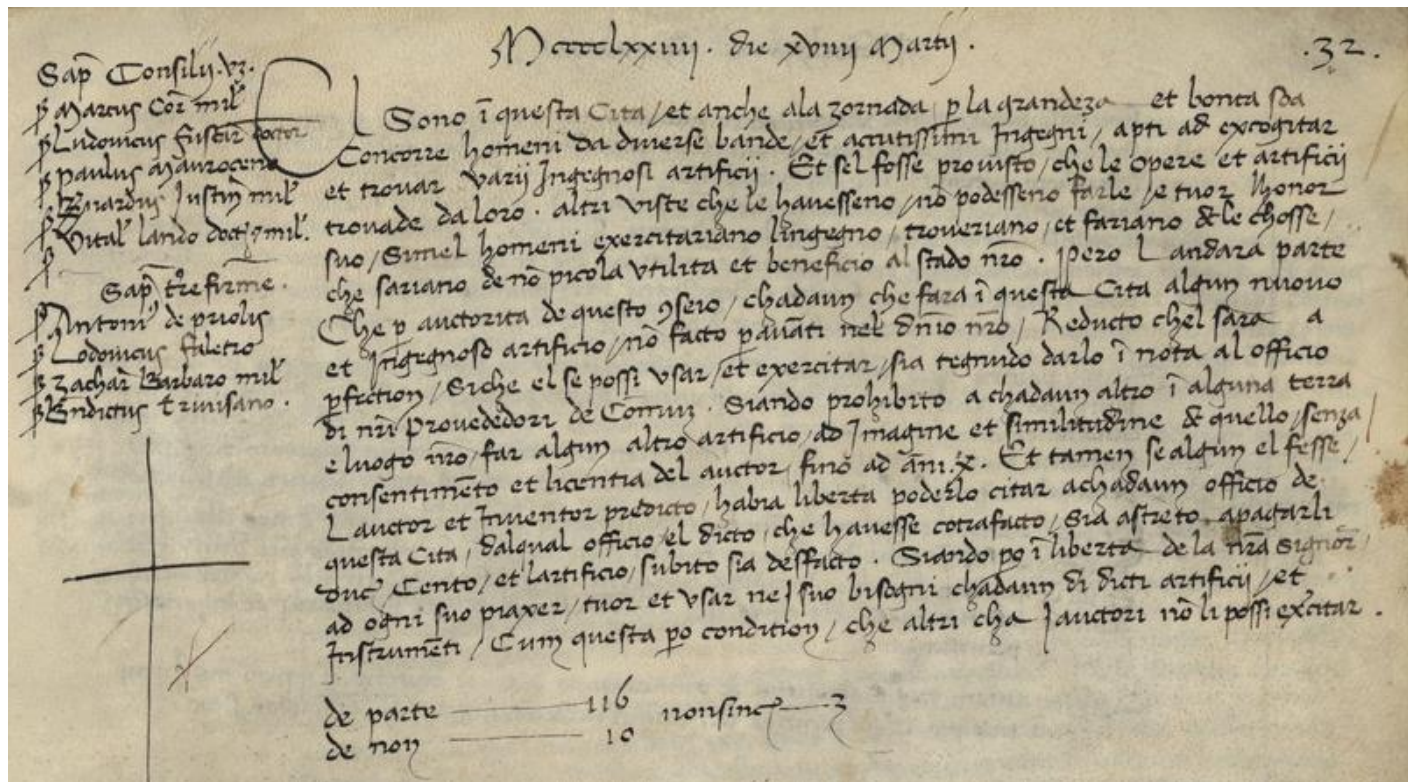 Mccccclxxiiii . die xviiii Martii .
.32.
Sap̃ Consilij . vz.
ꝑ Marcus Cor̃ mil̃
ꝑ Ludovicus fuscar̃ doctor
ꝑ Paulus Mauroceno
ꝑ Bñardus Justiñ mil̃
ꝑ Vital̃ lando doct⁊ mil̃.
ꝑ
Sap̃ tr̃e firme .
ꝑ Antoni⁹ de priolis
ꝑ Lodovicus faletro
ꝑ Zachar̃ Barbaro mil̃
ꝑ Bñdictus trivisano .
El Sono ĩ questa Cita / et anche ala zornada ꝑ la grandeza et bonta soa
Concorre homeni da diverse bande / et accutissimi Ingegni / apti ad excogitar
et trovar varij Ingegnosi artificij . Et sel fosse provisto / che le opere et artificij
trovade da loro . altri viste che le havesseno / nõ podesseno farle / e tuor lhonor
suo / Simel homeni exercitariano lingegno / troveriano / et fariano de le chosse /
che sariano de nõ picola utilita et beneficio al stado nr̃o . Pero Landara parte
Che ꝑ auctorita de questo ꝯseio / chadaun che fara ĩ questa Cita algun nuovo
et Ingegnoso artificio / nõ facto ꝑ avãti nel dñio nr̃o / Reducto chel sara a
ꝑfection / Siche el se possi usar / et exercitar / sia tegnudo darlo ĩ nota al officio
di nr̃i Provededori de Comun . Siando prohibito a chadaun altro ĩ alguna terra
e luogo nr̃o / far algun altro artificio / ad Imagine et similitudine de quello / senza
consentimẽto et licentia del auctor / fino ad ãni .x. Et tamen se algun el fesse /
Lauctor et Inventor predicto / habia liberta poderlo citar a chadaun officio de
questa Cita / dal qual officio / el dicto / che havesse cõtrafacto / Sia astreto apagarli
Duc̃ Cento / et lartificio / subito sia desfacto . Siando ꝑo ĩ liberta de la nr̃a Signor̃ /
ad ogni suo piaxer / tuor et usar nej suo bisogni chadaun di dicti artificij / et
Instrumẽti / Cum questa ꝑo condition / che altri cha j auctori nõ li possi exc̃itar .
de parte 116 non sinc̃ 3
de non 10